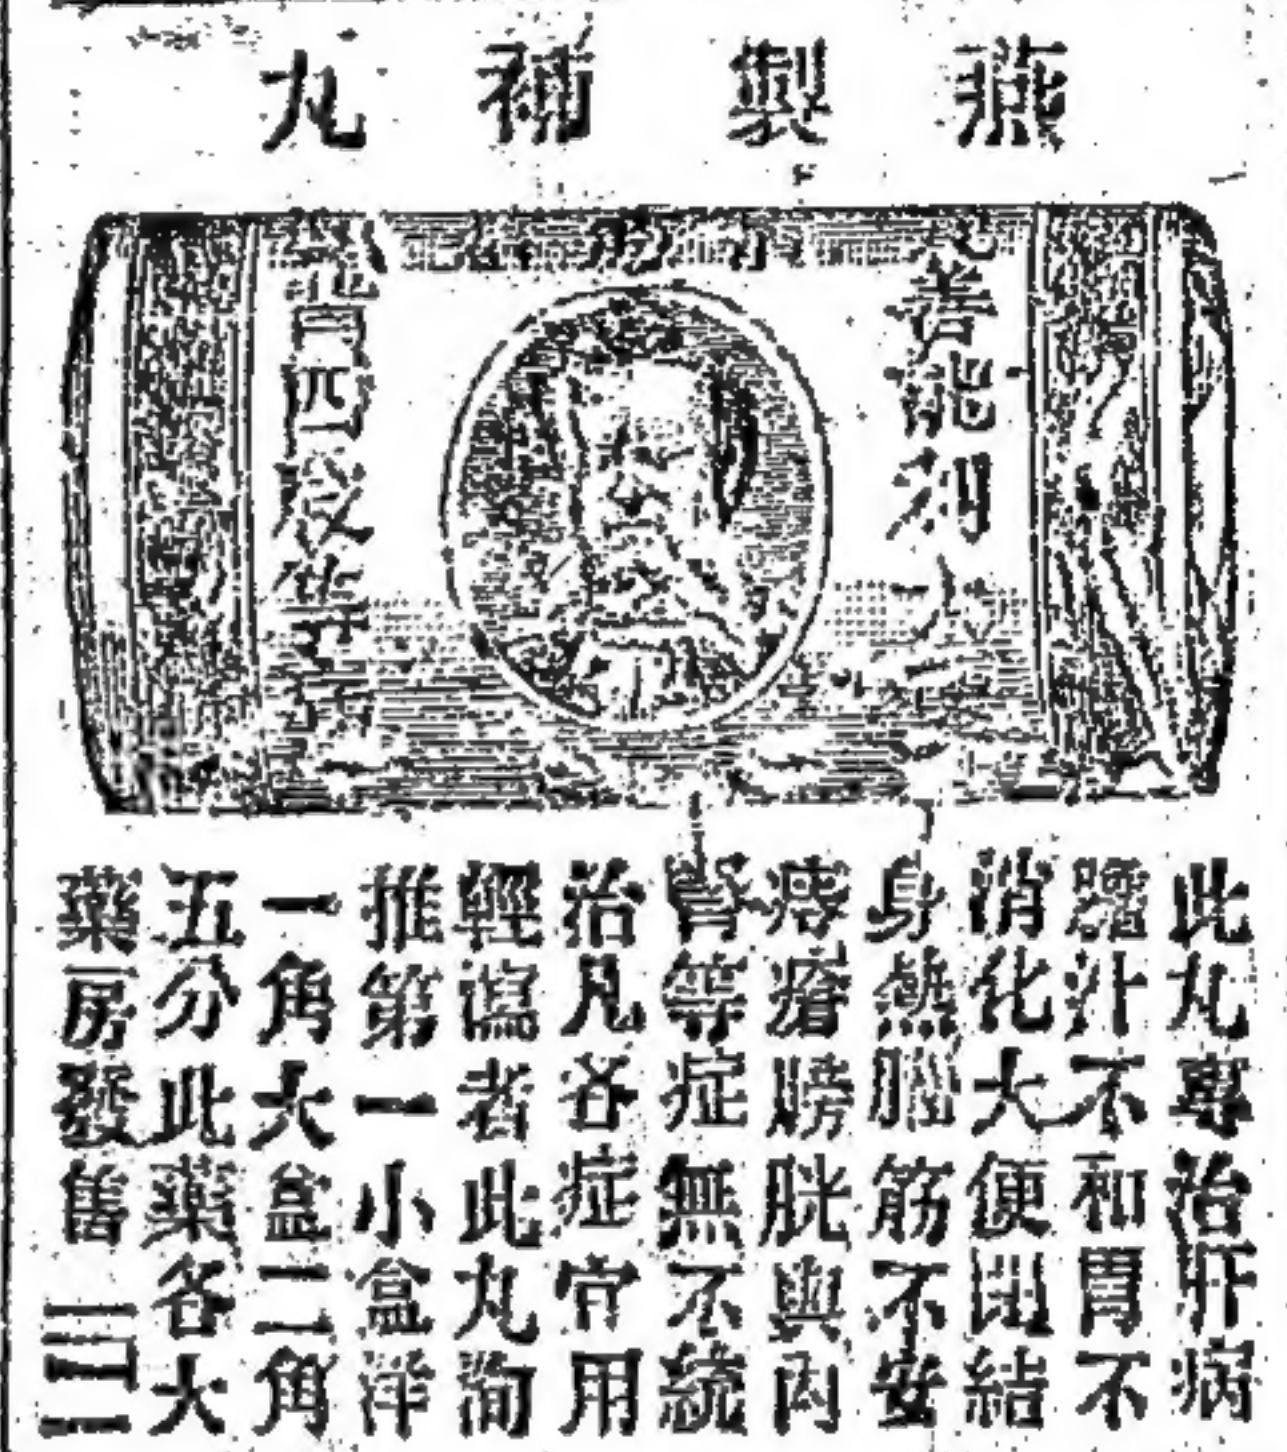 燕製補丸
善能利
此丸專治肝病
膽汁不和胃不
消化大便閉結
身熱腦筋不安
痔瘡膀胱與內
腎等症無不統
治凡各症宜用
輕瀉者此丸洵
推第一小盒洋
一角大盒二角
五分此藥各大
藥房發售